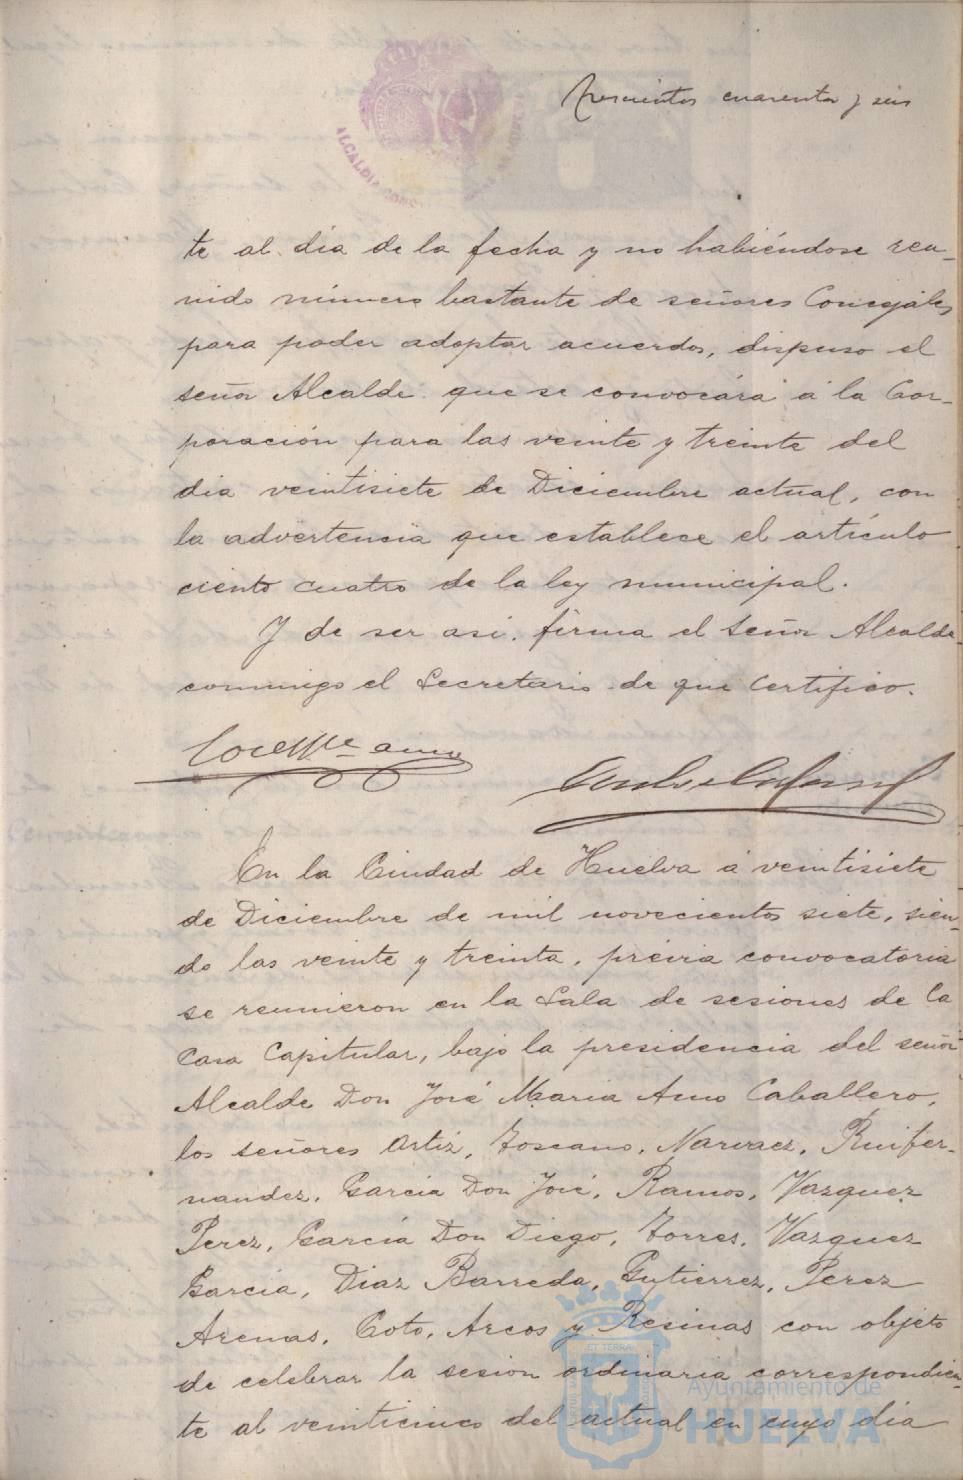 Trescientos cuarenta y seis
ALCALDIA CONS
te al día de la fecha y no habiéndose reu-
nido número bastante de señores Concejales
para poder adoptar acuerdos, dispuso el
señor Alcalde que se convocára á la Cor-
poración para las veinte y treinta del
dia veintisiete de Diciembre actual, con
la advertencia que establece el artículo
ciento cuatro de la ley municipal.
Y de ser asi firma el Señor Alcalde
conmigo el Secretario de que Certifico.
En la Ciudad de Huelva á veintisiete
de Diciembre de mil novecientos siete, sien-
do las veinte y treinta, prévia convocatoria
se reunieron en la Sala de sesiones de la
Casa Capitular, bajo la presidencia del señor
Alcalde Don José Maria Amo Caballero,
los señores Ortiz, Toscano, Narvaez, Ruifer-
nandez, Garcia Don José, Ramos, Vazquez
Perez, García Don Diego, Torres, Vazquez
Garcia, Diaz Barreda, Gutierrez, Perez
Arenas, Coto, Arcos y Resinas con objeto
de celebrar la sesion ordinaria correspondien-
te al veinticinco del actual en cuyo dia
ET TERRA
Ayuntamiento de
HUELVA